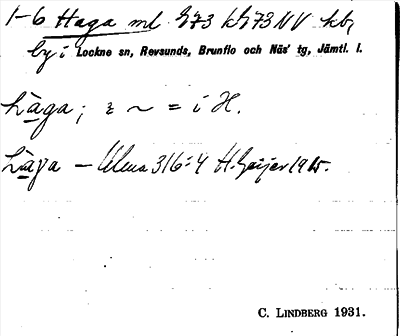 1-6 Haga ml 873 kb 73 NV kb,
by i Lockne sn, Revsunds, Brunflo och Näs' tg, Jämtl. l.
hàga; ~ = i H.
hàga – 316:4 H. Geijer 1915.
C. LINDBERG 1931.